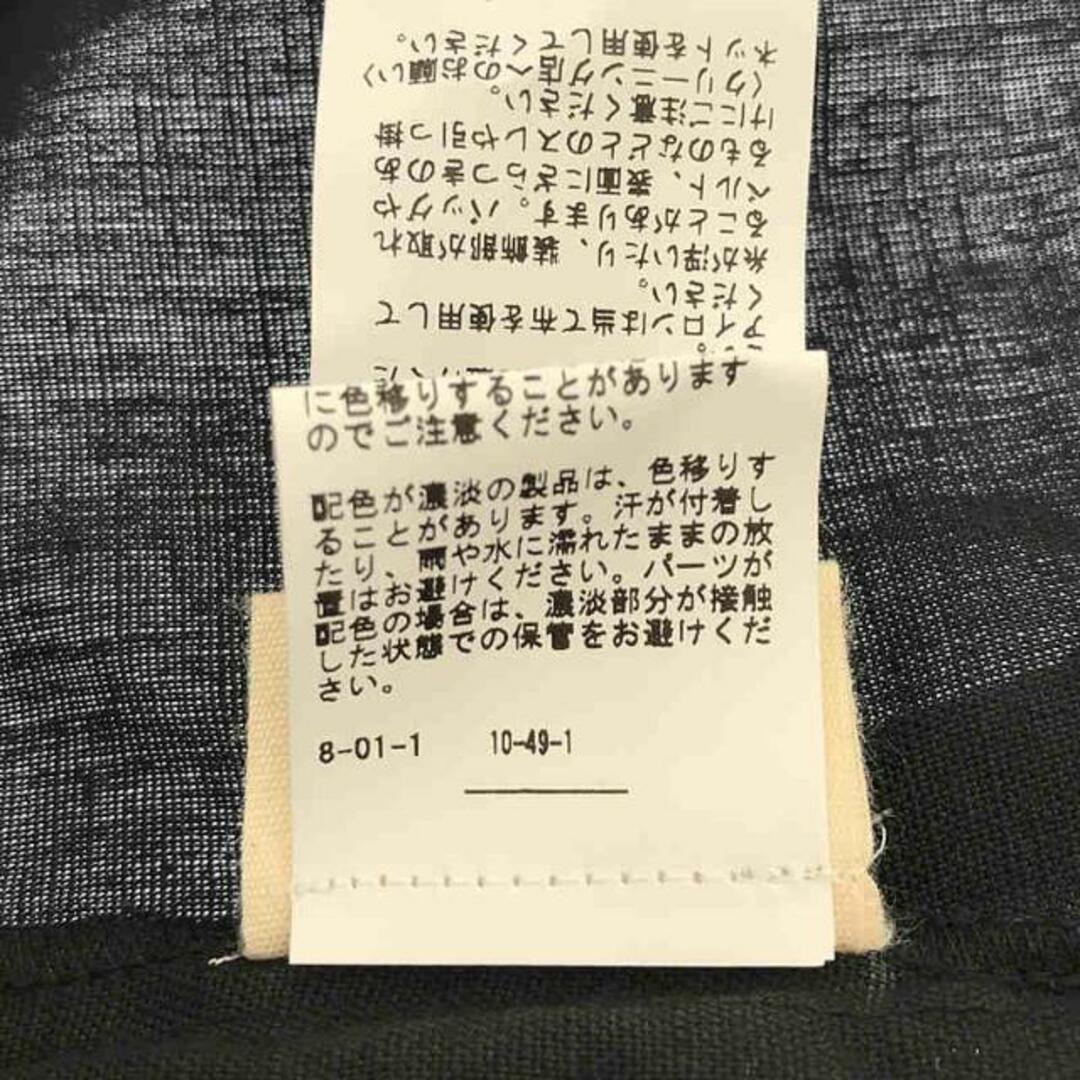 アイロンは当て布を使用して
ください。
糸が浮いたり、装飾部が取れ
ることがあります。バッグや
ベルト、表面にざらつきのあ
るものなどとのスレや引っ掛
けにご注意ください。
〈クリーニング店へのお願い〉
ネットを使用してください。
に色移りすることがあります
のでご注意ください。
配色が濃淡の製品は、色移りす
ることがあります。汗が付着し
たり、雨や水に濡れたままの放
置はお避けください。パーツが
配色の場合は、濃淡部分が接触
した状態での保管をお避けくだ
さい。
8-01-1 10-49-1